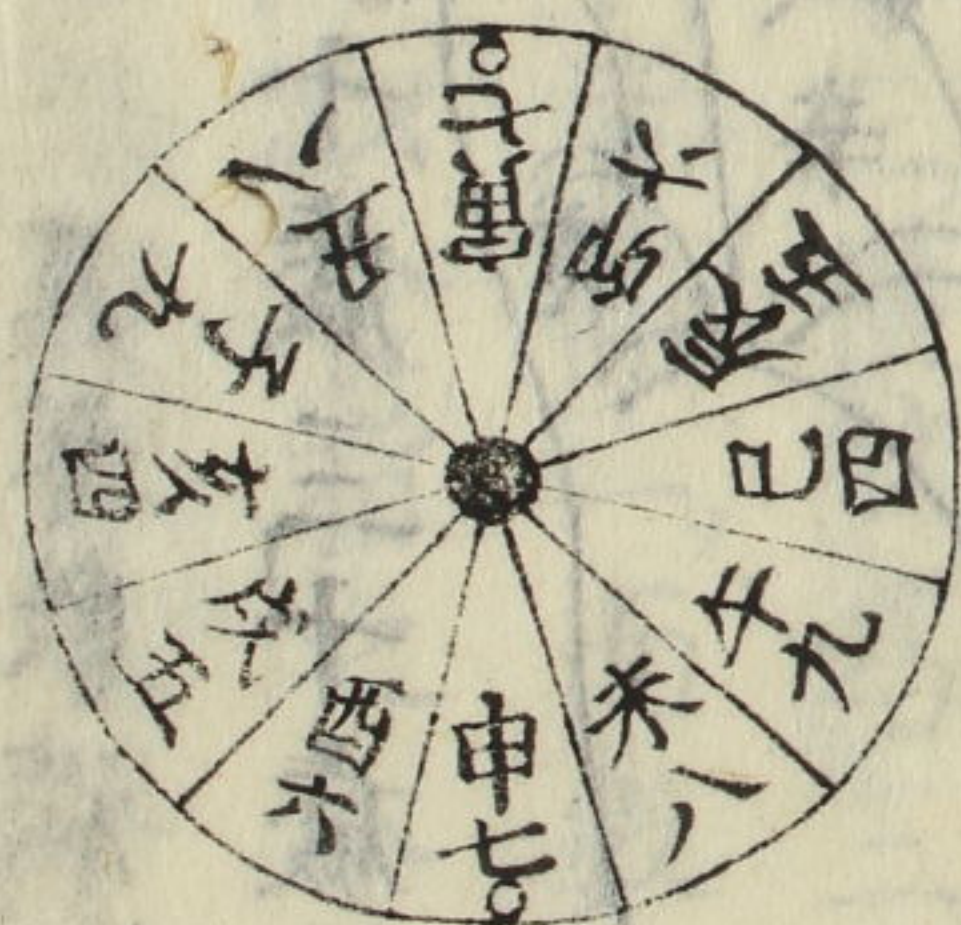 子九
丑八
寅七
卯六
辰五
巳四
午九
未八
申七
酉六
戌五
亥四